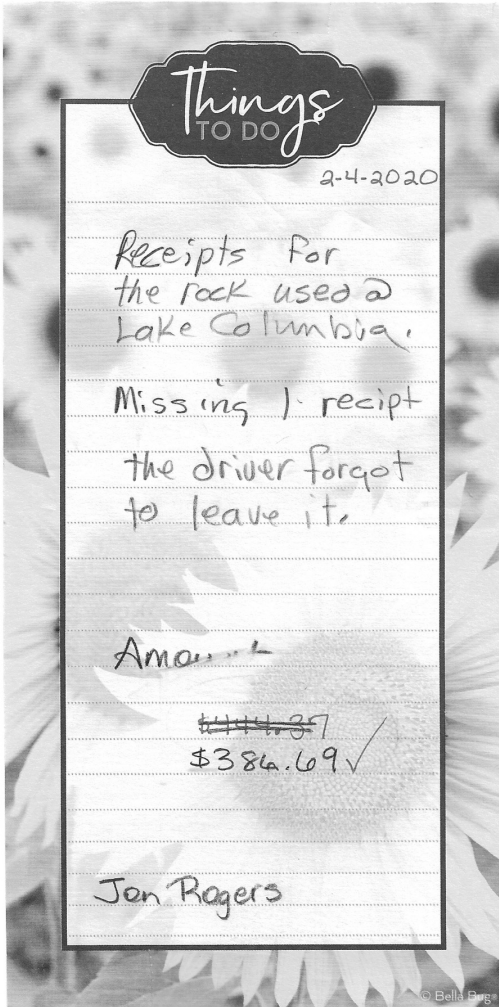 Things
TO DO
2-4-2020
Receipts for
the rock used @
Lake Columbia.
Missing 1 recipt
the driver forgot
to leave it.
Amount
$444.37
$386.69 ✓
Jon Rogers
© Bella Bug